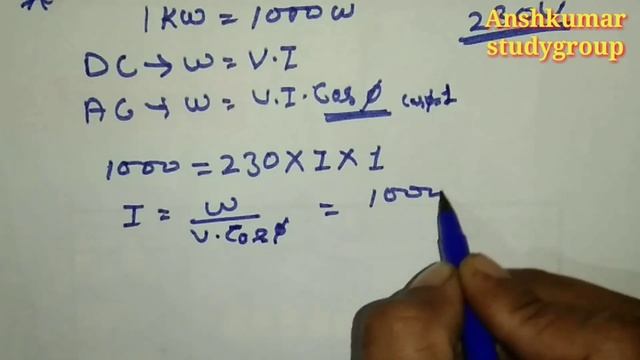 1 KW = 1000W
Anshkumar
studygroup
DC → W = V.I
AC → W = V.I.Cos ϕ cosϕ=1
1000 = 230 X I X 1
I = W / V.Cosϕ = 1000